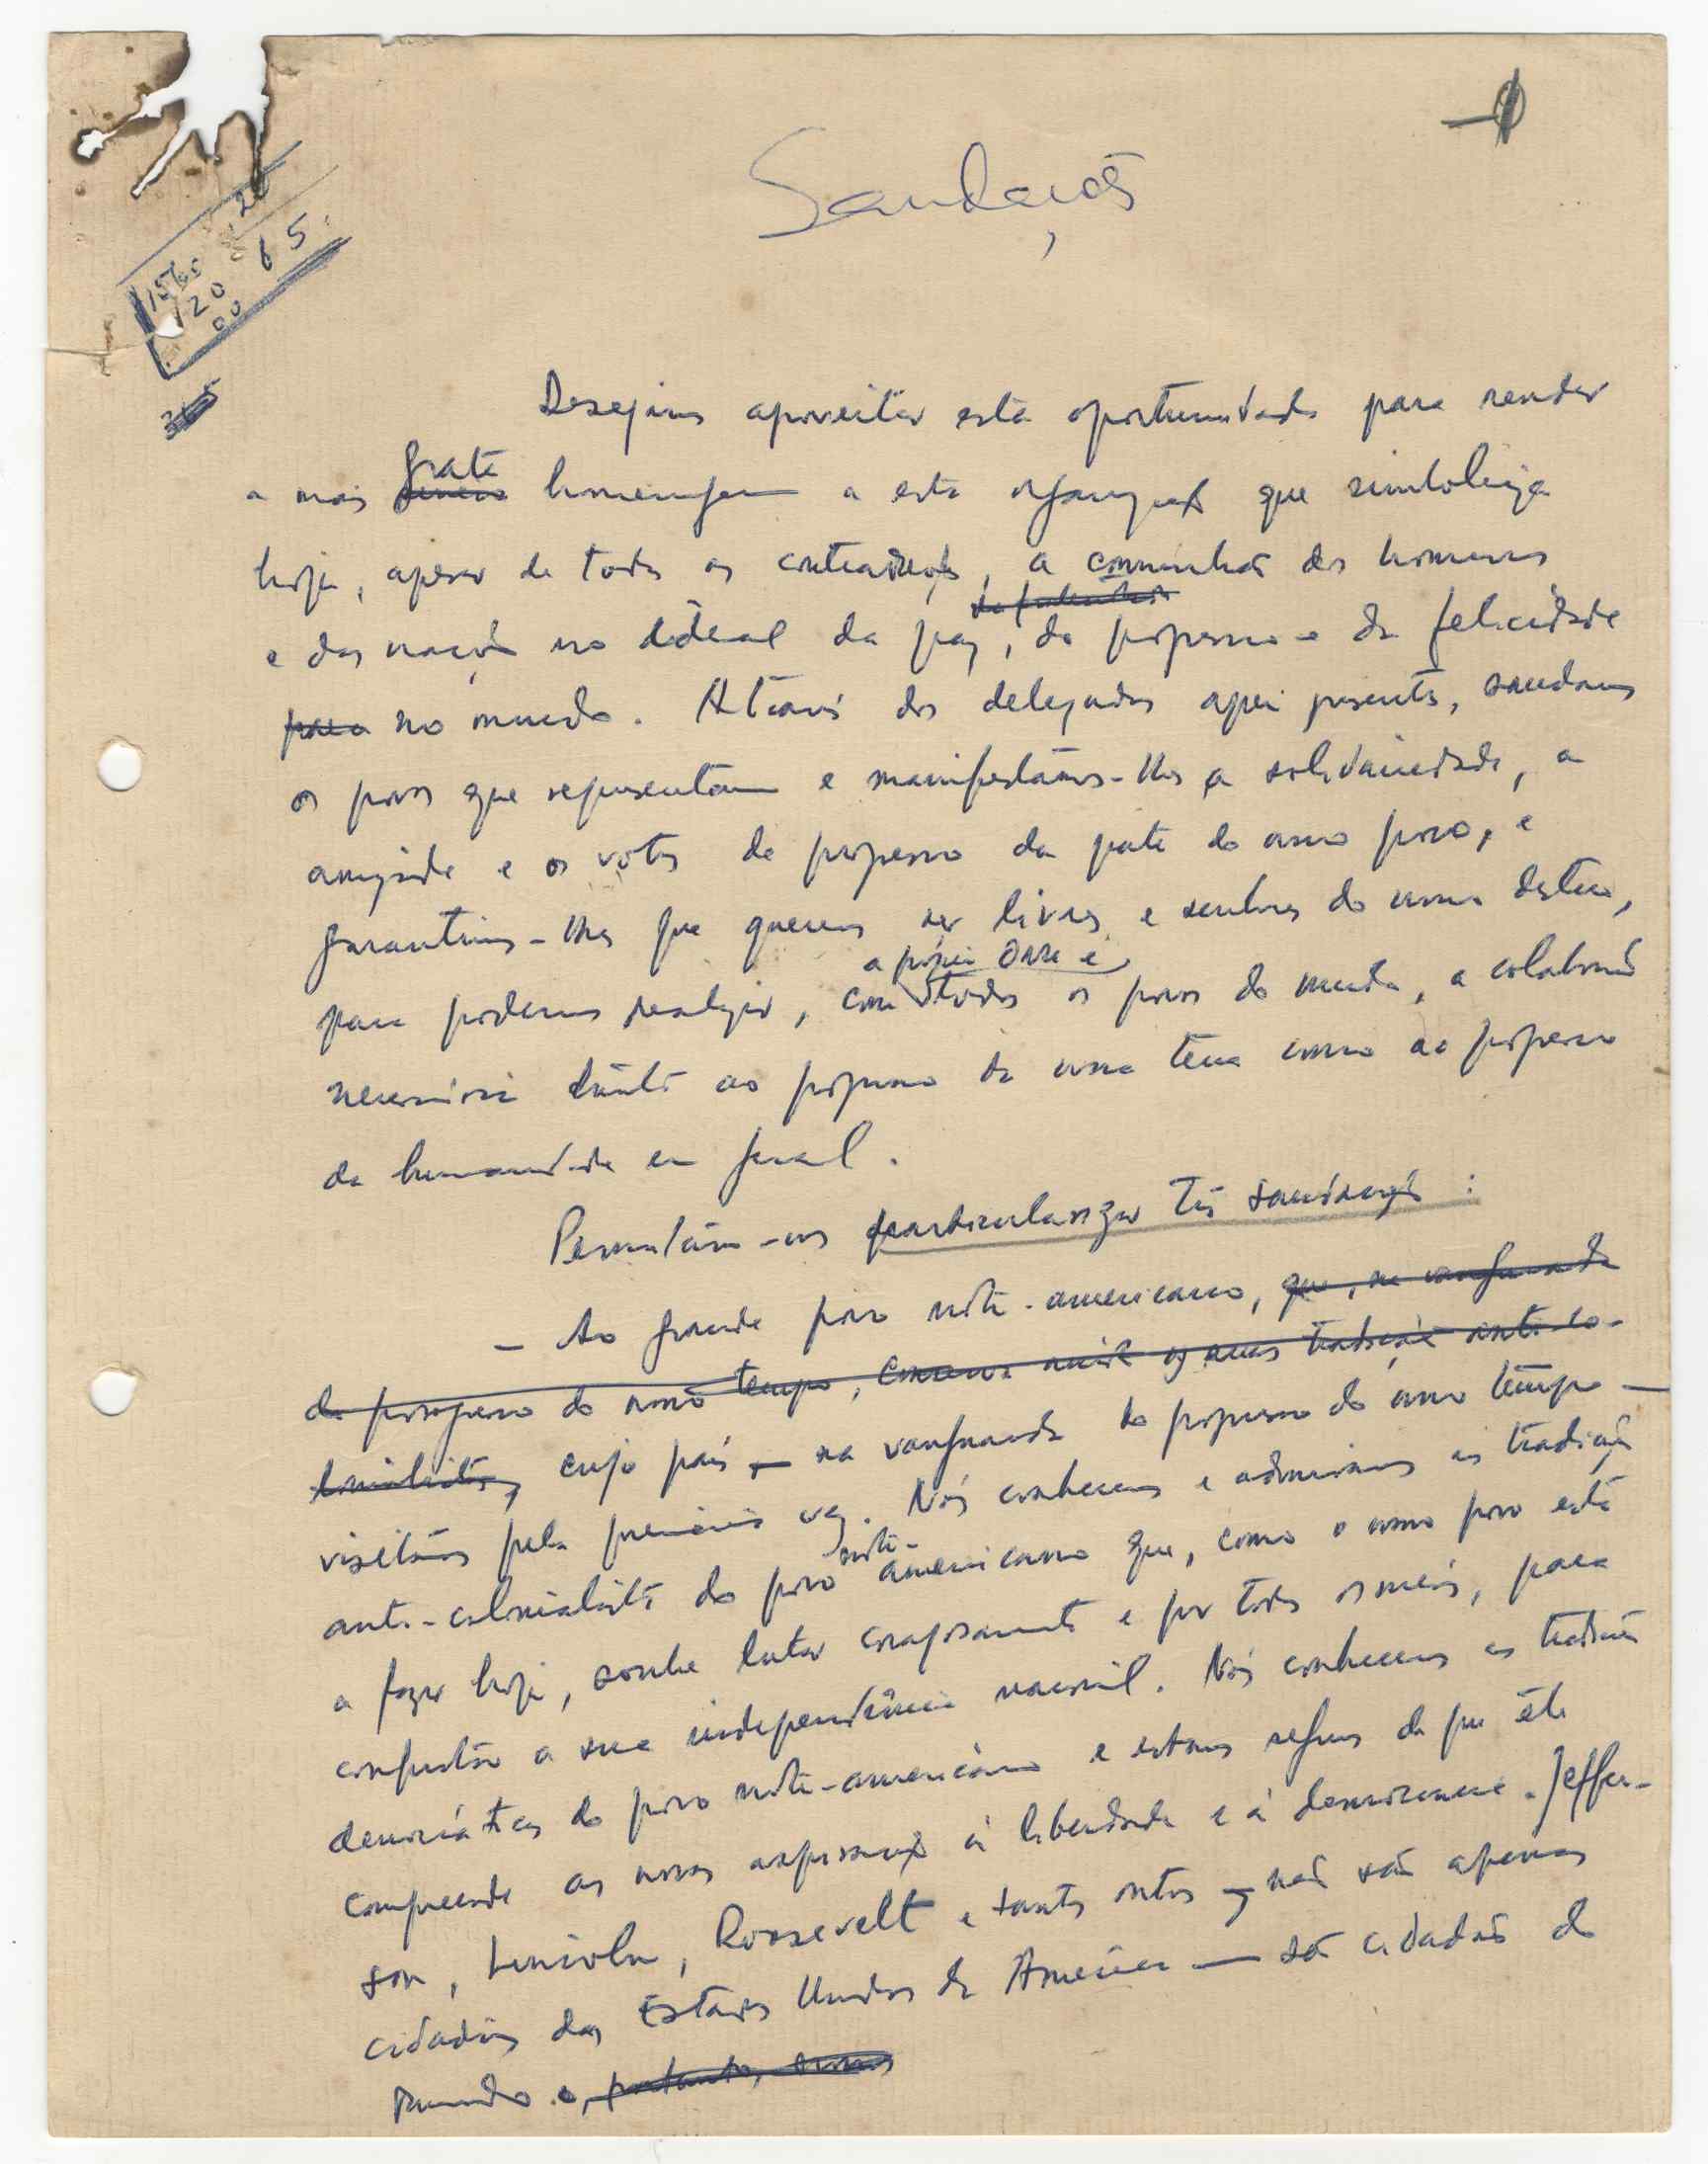 Saudações
20
65
15
120
00
365
Desejamos aproveitar esta oportunidade para render
grata
a mais homenagem a esta organização que simboliza
hoje, apesar de todas as contradições, a comunhão dos homens
e das nações no ideal da paz, do progresso e da felicidade
para no mundo. Através dos delegados aqui presentes, saudamos
os povos que representam e manifestamos-lhes a solidariedade, a
amizade e os votos de progresso da parte do nosso povo, e
garantimos-lhes que queremos ser livres e senhores do nosso destino,
a própria ONU e
para podermos realizar, com todos os povos do mundo, a colaboração
necessária tanto ao progresso da nossa terra como ao progresso
da humanidade em geral.
Permitam-nos particularizar três saudações:
- Ao grande povo norte-americano, que, na vanguarda
do progresso do nosso tempo, conserva as suas tradições anti-co-
lonialistas, cujo país - na vanguarda do progresso do nosso tempo -
visitamos pela primeira vez. Nós conhecemos e admiramos as tradições
norte-
anti-colonialistas do povo americano que, como o nosso povo está
a fazer hoje, soube lutar corajosamente e por todos os meios, para
conquistar a sua independência nacional. Nós conhecemos as tradições
democráticas do povo norte-americano e estamos seguros de que êle
compreende as nossas aspirações à liberdade e à democracia. Jeffer-
son, Lincoln, Roosevelt e tantos outros - não são apenas
cidadãos dos Estados Unidos da América - são cidadãos do
Mundo e, portanto, nossos